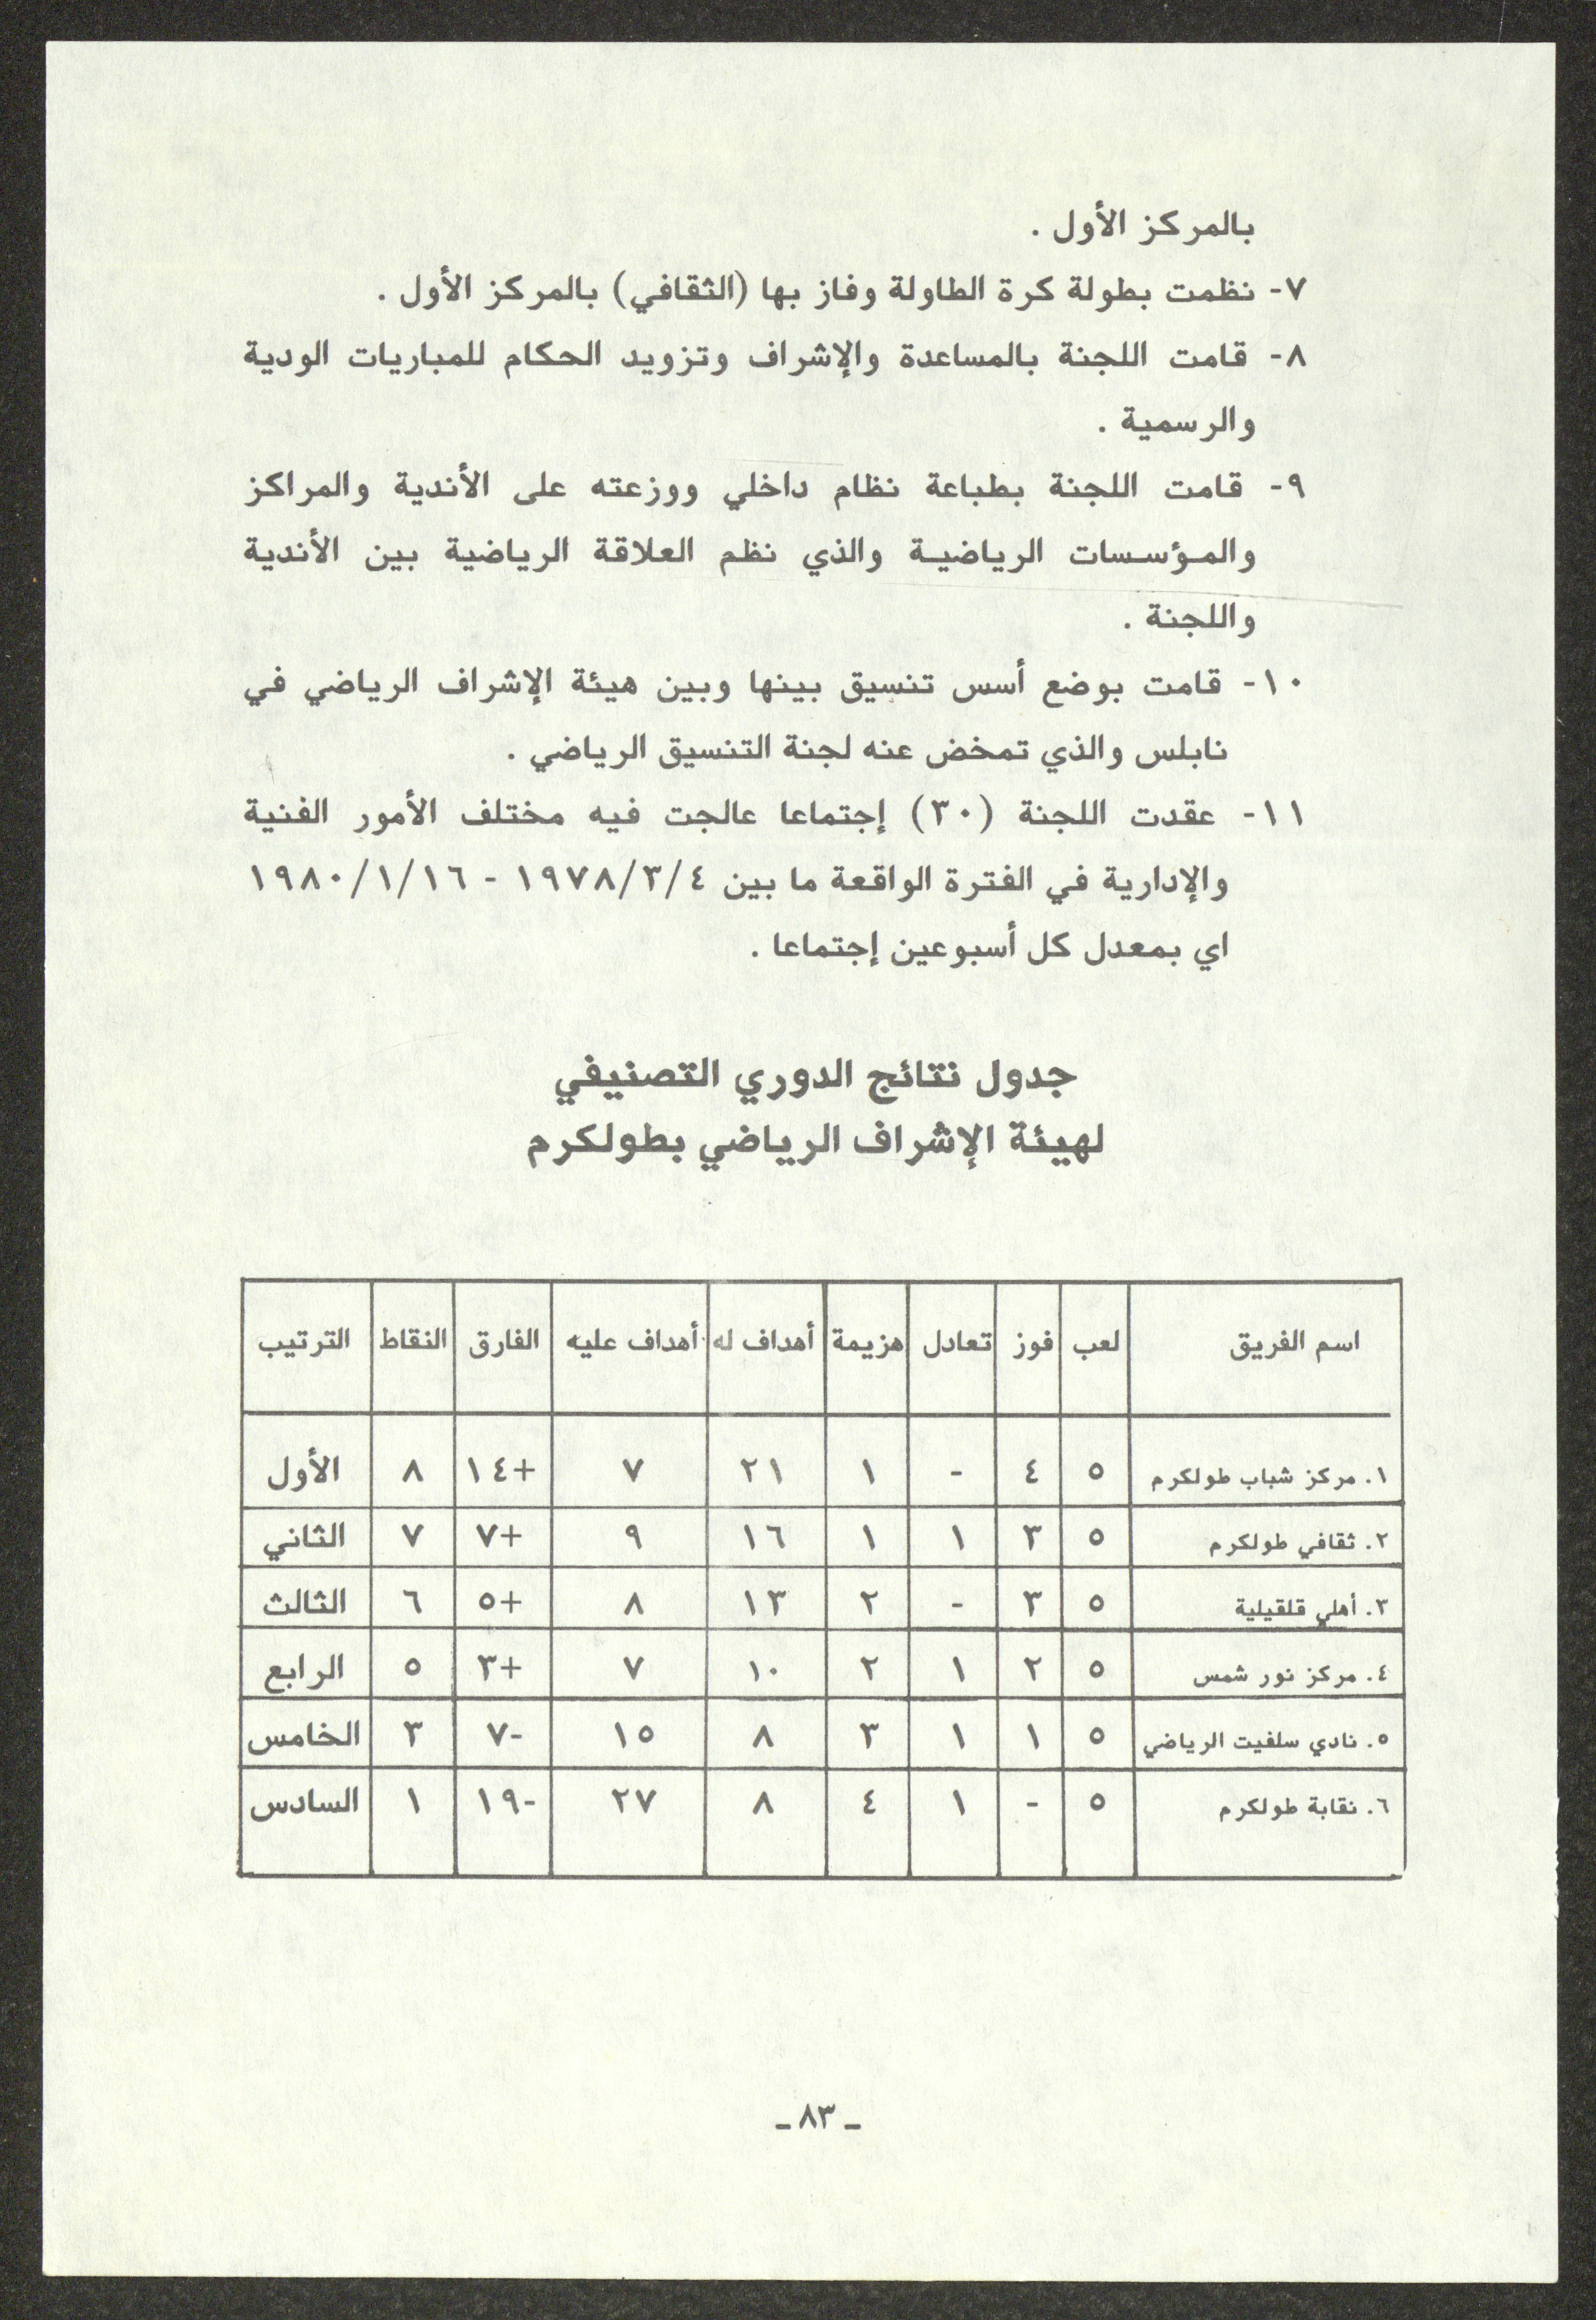 بالمركز الأول .
٧- نظمت بطولة كرة الطاولة وفاز بها (الثقافي) بالمركز الأول .
٨- قامت اللجنة بالمساعدة والإشراف وتزويد الحكام للمباريات الودية
والرسمية .
٩- قامت اللجنة بطباعة نظام داخلي ووزعته على الأندية والمراكز
والمؤسسات الرياضية والذي نظم العلاقة الرياضية بين الأندية
واللجنة .
١٠- قامت بوضع أسس تنسيق بينها وبين هيئة الإشراف الرياضي في
نابلس والذي تمخض عنه لجنة التنسيق الرياضي .
١١- عقدت اللجنة (٣٠) إجتماعا عالجت فيه مختلف الأمور الفنية
والإدارية في الفترة الواقعة ما بين ١٩٧٨/٣/٤ - ١٩٨٠/١/١٦
اي بمعدل كل أسبوعين إجتماعا .
جدول نتائج الدوري التصنيفي
لهيئة الإشراف الرياضي بطولكرم
اسم الفريق لعب فوز تعادل هزيمة أهداف له أهداف عليه الفارق النقاط الترتيب
١. مركز شباب طولكرم ٥ ٤ - ١ ٢١ ٧ +١٤ ٨ الأول
٢. ثقافي طولكرم ٥ ٣ ١ ١ ١٦ ٩ +٧ ٧ الثاني
٣. أهلي قلقيلية ٥ ٣ - ٢ ١٣ ٨ +٥ ٦ الثالث
٤. مركز نور شمس ٥ ٢ ١ ٢ ١٠ ٧ +٣ ٥ الرابع
٥. نادي سلفيت الرياضي ٥ ١ ١ ٣ ٨ ١٥ -٧ ٣ الخامس
٦. نقابة طولكرم ٥ - ١ ٤ ٨ ٢٧ -١٩ ١ السادس
ـ ٨٣ ـ